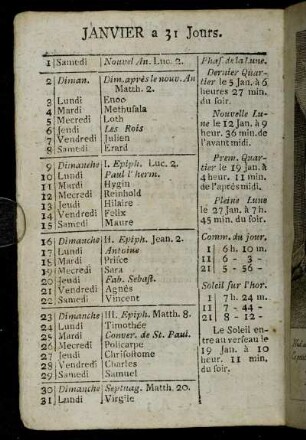 JANVIER a 31 Jours.
1 Samedi Nouvel An. Luc. 2.
2 Diman. Dim. après le nouv. An
Matth. 2.
3 Lundi Enoc
4 Mardi Methusala
5 Mecredi Loth
6 Jeudi Les Rois
7 Vendredi Julien
8 Samedi Erard
9 Dimanche I. Epiph. Luc. 2.
10 Lundi Paul l'herm.
11 Mardi Hygin
12 Mecredi Reinhold
13 Jeudi Hilaire
14 Vendredi Felix
15 Samedi Maure
16 Dimanche II. Epiph. Jean. 2.
17 Lundi Antoine
18 Mardi Prisce
19 Mecredi Sara
20 Jeudi Fab. Sebast.
21 Vendredi Agnès
22 Samedi Vincent
23 Dimanche III. Epiph. Matth. 8.
24 Lundi Timothée
25 Mardi Conver. de St. Paul.
26 Mecredi Policarpe
27 Jeudi Chrisostome
28 Vendredi Charles
29 Samedi Samuel
30 Dimanche Septuag. Matth. 20.
31 Lundi Virgile
Phas. de la Lune.
Dernier Quar-
tier le 5 Jan. à 6
heures 27 min.
du soir.
Nouvelle Lu-
ne le 12 Jan. à 9
h. 36 min. de
l'avant midi.
Prem. Quar-
tier le 19 Jan. à
4 h. 11 min.
de l'après midi.
Pleine Lune
le 27 Jan. à 7 h.
45 min. du soir.
Comm. du jour.
1 6 h. 10 m.
11 6 - 3 -
21 5 - 56 -
Soleil sur l'hor.
1 7 h. 24 m.
11 7 - 44 -
21 8 - 12 -
Le Soleil en-
tre au verseau le
19 Jan. à 10
heur. 11 min.
du soir.